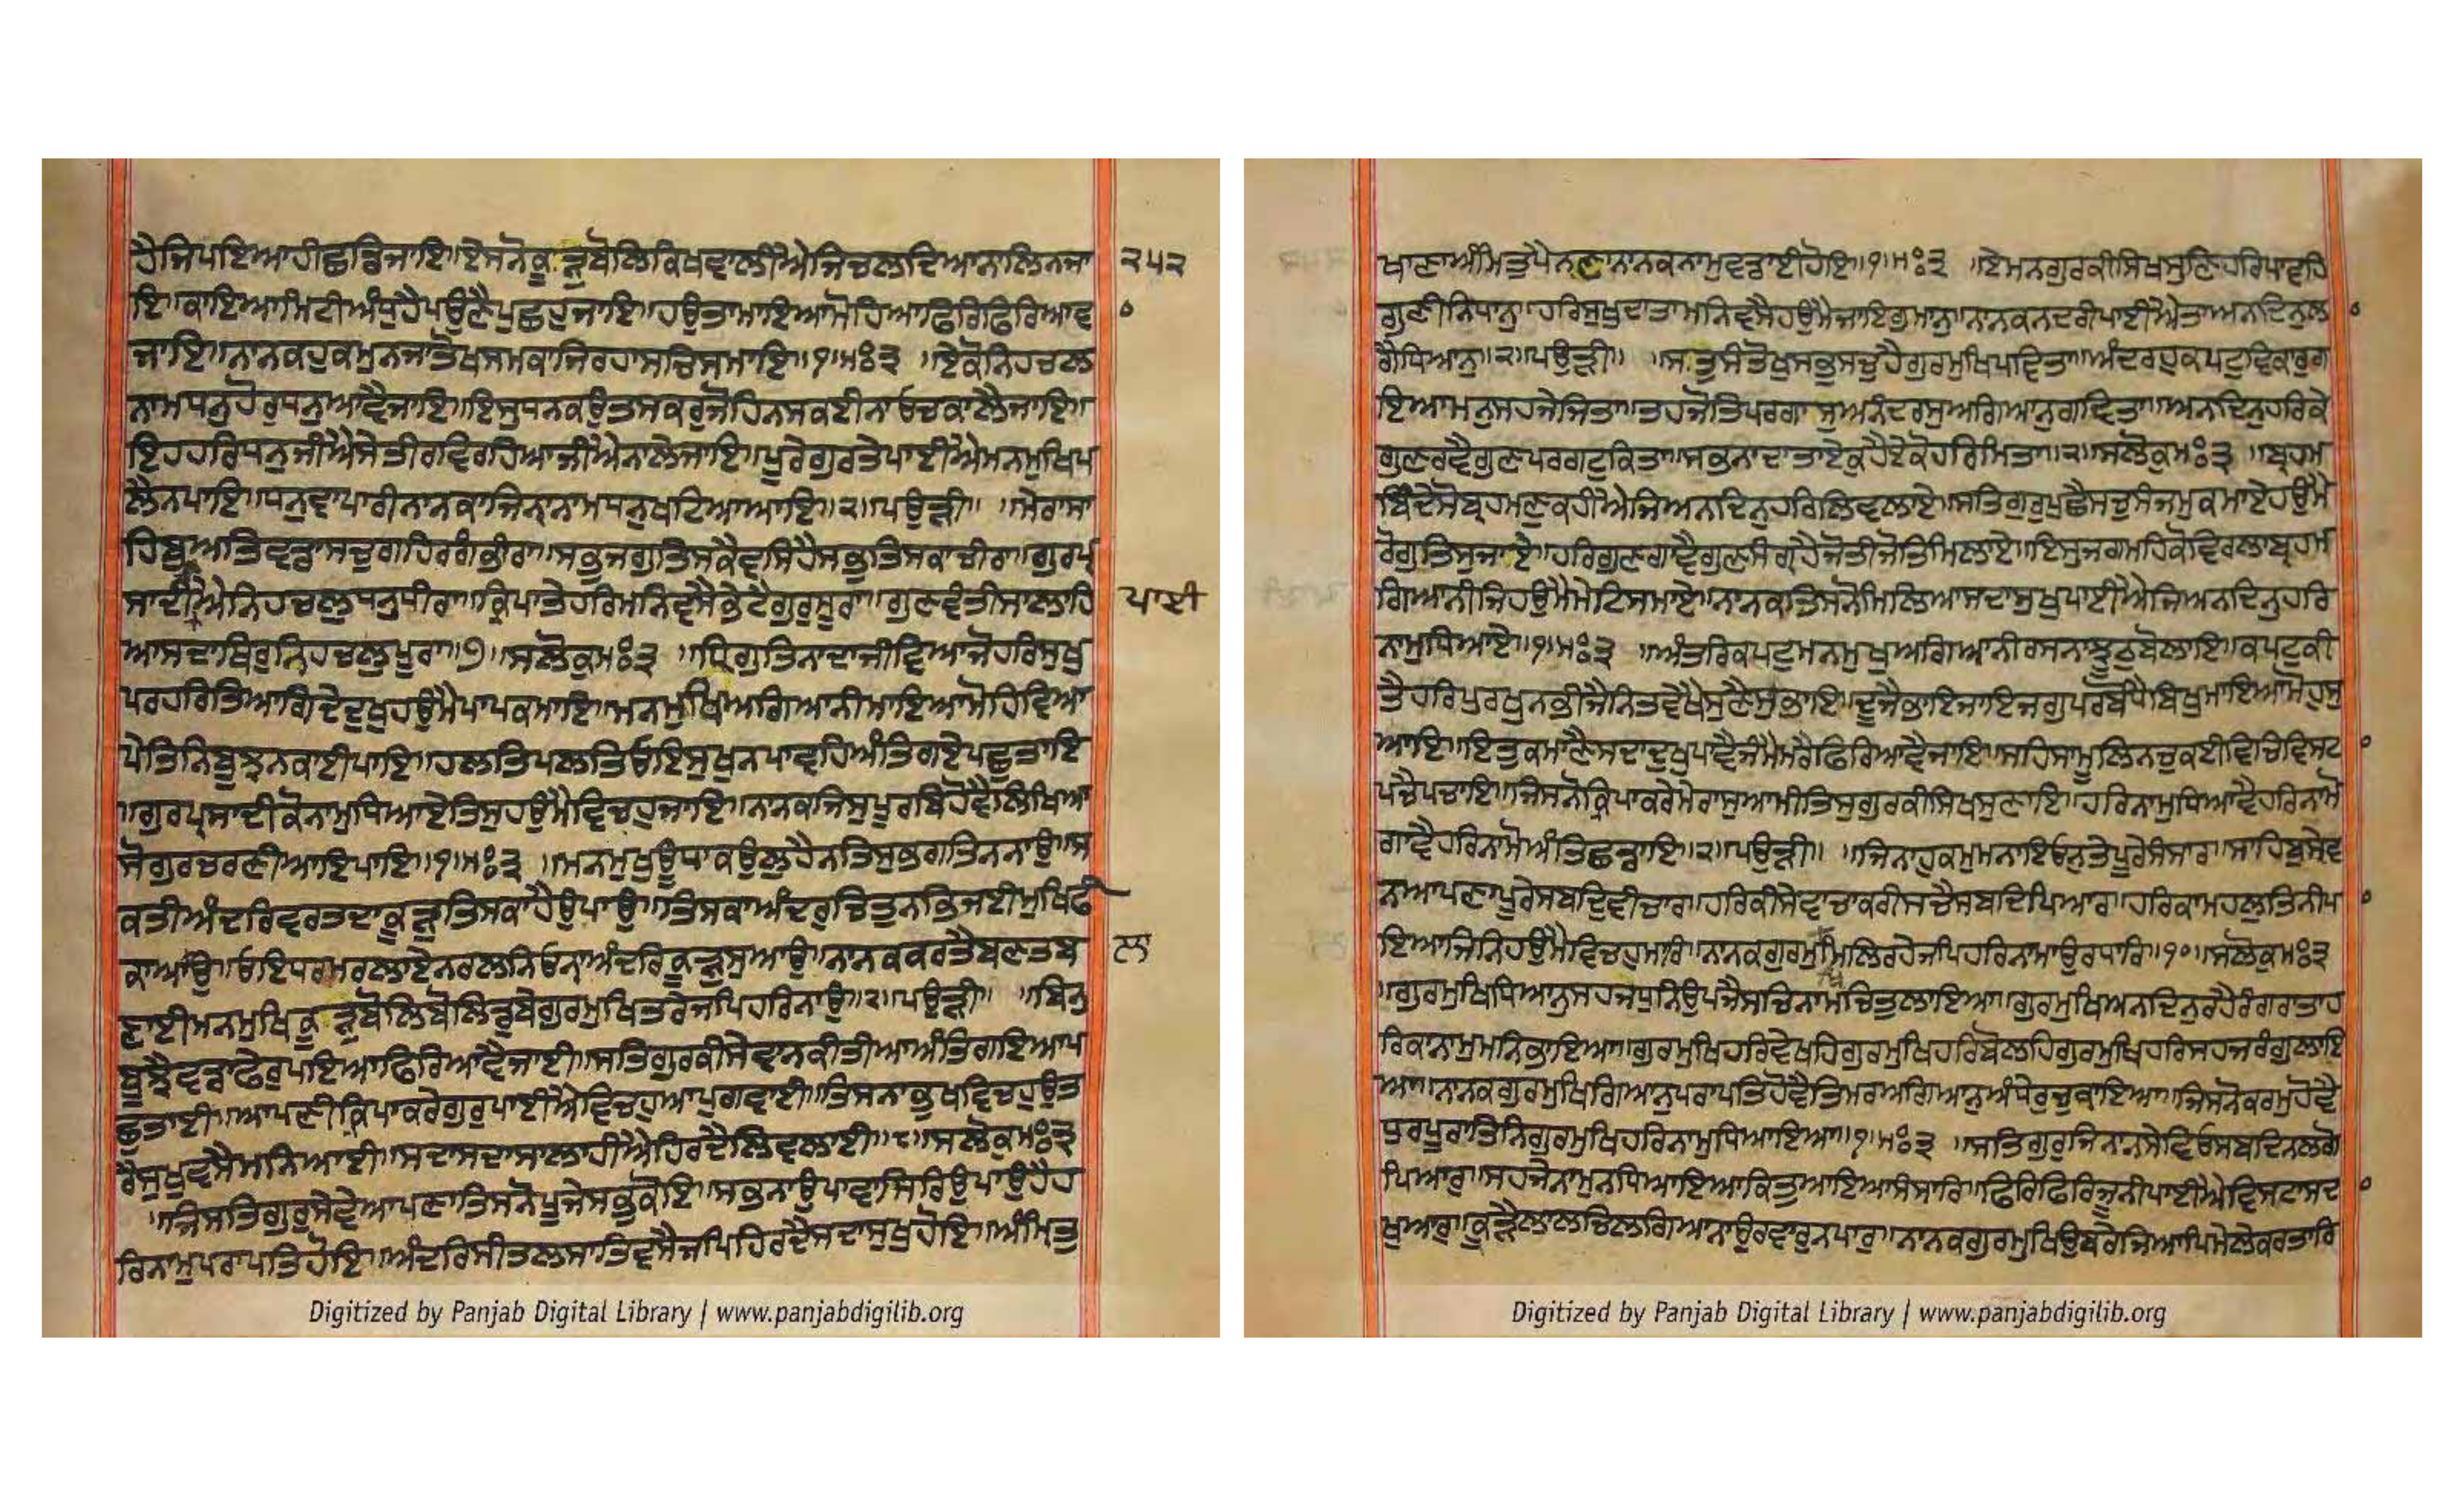 ਹੈਜਿਪਇਆਹੀਛਡਿਜਾਇ॥ਇਸਨੋਕੂੜੁਬੋਲਿਕਿਖਵਾਲੀਐਜਿਚਲਦਿਆਨਾਲਿਨਜਾ ੨੫੨
ਇ॥ਕਾਇਆਮਿਟੀਅੰਧੁਹੈਪਉਣੈਪੁਛਹੁਜਾਇ॥ਹਉਤਾਮਾਇਆਮੋਹਿਆਫਿਰਿਫਿਰਿਆਵ
ਜਾਇ॥ਨਾਨਕਹੁਕਮੁਨਜਾਤੋਖਸਮਕਾਜਿਰਹਾਸਚਿਸਮਾਇ॥੧॥ਮਃ੩ ॥ਏਕੋਨਿਹਚਲ
ਨਾਮਧਨੁਹੋਰੁਧਨੁਆਵੈਜਾਇ॥ਇਸੁਧਨਕਉਤਸਕਰੁਜੋਹਿਨਸਕਈਨਾਓਚਕਾਲੈਜਾਇ॥
ਇਹਹਰਿਧਨੁਜੀਐਸੇਤੀਰਵਿਰਹਿਆਜੀਐਨਾਲੇਜਾਇ॥ਪੂਰੇਗੁਰਤੇਪਾਈਐਮਨਮੁਖਿਪ
ਲੈਨਪਾਇ॥ਧਨੁਵਾਪਾਰੀਨਾਨਕਾਜਿਨ੍ਹਾਨਾਮਧਨੁਖਟਿਆਆਇ॥੨॥ਪਉੜੀ॥ ॥ਮੇਰਾਸਾ
ਹਿਬੁਅਤਿਵਡਾਸਚੁਗਹਿਰਗੰਭੀਰਾ॥ਸਭੁਜਗੁਤਿਸਕੈਵਸਿਹੈਸਭੁਤਿਸਕਾਚੀਰਾ॥ਗੁਰਪ੍
ਸਾਦੀਪਾਈਐਨਿਹਚਲੁਧਨੁਧੀਰਾ॥ਕਿਰਪਾਤੇਹਰਿਮਨਿਵਸੈਭੇਟੈਗੁਰੁਸੂਰਾ॥ਗੁਣਵੰਤੀਸਾਲਾਹਿ ਪਾਈ
ਆਸਦਾਥਿਰੁਨਿਹਚਲੁਪੂਰਾ॥੭॥ਸਲੋਕੁਮਃ੩ ॥ਧ੍ਰਿਗੁਤਿਨਾਦਾਜੀਵਿਆਜੋਹਰਿਸੁਖੁ
ਪਰਹਰਿਤਿਆਗਿਦੇਦੁਖੁਹਉਮੈਪਾਪਕਮਾਇ॥ਮਨਮੁਖਿਅਗਿਆਨੀਮਾਇਆਮੋਹਿਵਿਆ
ਪੇਤਿਨਿਬੂਝਨਕਾਈਪਾਇ॥ਹਲਤਿਪਲਤਿਓਇਸੁਖੁਨਪਾਵਹਿਅੰਤਿਗਏਪਛੁਤਾਇ
॥ਗੁਰਪ੍ਸਾਦੀਕੋਨਾਮੁਧਿਆਏਤਿਸੁਹਉਮੈਵਿਚਹੁਜਾਇ॥ਨਾਨਕਜਿਸੁਪੂਰਬਿਹੋਵੈਲਿਖਿਆ
ਸੋਗੁਰਚਰਣੀਆਇਪਾਇ॥੧॥ਮਃ੩ ॥ਮਨਮੁਖੁਊਧਾਕਉਲੁਹੈਨਤਿਸੁਭਗਤਿਨਨਾਉ॥ਸ
ਕਤੀਅੰਦਰਿਵਰਤਦਾਕੂੜੁਤਿਸਕਾਹੈਉਪਾਉ॥ਤਿਸਕਾਅੰਦਰੁਚਿਤੁਨਭਿਜਈਮੁਖਿਫੀ
ਕਾਆਲਾਉ॥ਓਇਧਰਮਰਲਾਏਨਰਲਨਿਓਨ੍ਹਾਅੰਦਰਿਕੂੜੁਸੁਆਉ॥ਨਾਨਕਕਰਤੈਬਣਤਬ ਲਾ
ਣਾਈਮਨਮੁਖਿਕੂੜੁਬੋਲਿਬੋਲਿਡੁਬੇਗੁਰਮੁਖਿਤਰੇਜਪਿਹਰਿਨਾਉ॥੨॥ਪਉੜੀ॥ ॥ਬਿਨੁ
ਬੂਝੈਵਡਾਫੇਰੁਪਇਆਫਿਰਿਆਵੈਜਾਈ॥ਸਤਿਗੁਰਕੀਸੇਵਾਨਕੀਤੀਆਅੰਤਿਗਇਆਪ
ਛੁਤਾਈ॥ਆਪਣੀਕਿਰਪਾਕਰੇਗੁਰੁਪਾਈਐਵਿਚਹੁਆਪੁਗਵਾਈ॥ਤਿਸਨਾਭੁਖਵਿਚਹੁਉਤ
ਰੈਸੁਖੁਵਸੈਮਨਿਆਈ॥ਸਦਾਸਦਾਸਾਲਾਹੀਐਹਿਰਦੈਲਿਵਲਾਈ॥੮॥ਸਲੋਕੁਮਃ੩
॥ਜਿਸਤਿਗੁਰੁਸੇਵੇਆਪਣਾਤਿਸਨੋਪੂਜੇਸਭੁਕੋਇ॥ਸਭਨਾਉਪਾਵਾਸਿਰਿਉਪਾਉਹੈਹ
ਰਿਨਾਮੁਪਰਾਪਤਿਹੋਇ॥ਅੰਦਰਿਸੀਤਲਸਾਤਿਵਸੈਜਪਿਹਿਰਦੈਸਦਾਸੁਖੁਹੋਇ॥ਅੰਮਿਤੁ
ਖਾਣਾਅੰਮਿਤੁਪੈਨਣਾਨਾਨਕਨਾਮੁਵਡਾਈਹੋਇ॥੧॥ਮਃ੩ ॥ਏਮਨਗੁਰਕੀਸਿਖਸੁਣਿਹਰਿਪਾਵਹਿ
ਗੁਣੀਨਿਧਾਨੁ॥ਹਰਿਸੁਖੁਦਾਤਾਮਨਿਵਸੈਹਉਮੈਜਾਇਗੁਮਾਨੁ॥ਨਾਨਕਨਦਰੀਪਾਈਐਤਾਅਨਦਿਨੁਲ
ਗੈਧਿਆਨੁ॥੨॥ਪਉੜੀ॥ ॥ਸਤੁਸੰਤੋਖੁਸਭੁਸਚੁਹੈਗੁਰਮੁਖਿਪਵਿਤਾ॥ਅੰਦਰਹੁਕਪਟੁਵਿਕਾਰੁਗ
ਇਆਮਨੁਸਹਜੇਜਿਤਾ॥ਤਹਜੋਤਿਪਰਗਾਸੁਅਨੰਦਰਸੁਅਗਿਆਨੁਗਵਿਤਾ॥ਅਨਦਿਨੁਹਰਿਕੇ
ਗੁਣਰਵੈਗੁਣਪਰਗਟੁਕਿਤਾ॥ਸਭਨਾਦਾਤਾਏਕੁਹੈਏਕੋਹਰਿਮਿਤਾ॥੯॥ਸਲੋਕੁਮਃ੩ ॥ਬ੍ਰਹਮੁ
ਬਿੰਦੇਸੋਬ੍ਰਹਮਣੁਕਹੀਐਜਿਅਨਦਿਨੁਹਰਿਲਿਵਲਾਏ॥ਸਤਿਗੁਰੁਪੁਛੈਸਚੁਸੰਜਮੁਕਮਾਏਹਉਮੈ
ਰੋਗੁਤਿਸੁਜਾਏ॥ਹਰਿਗੁਣਗਾਵੈਗੁਣਸੰਗ੍ਰਹੈਜੋਤੀਜੋਤਿਮਿਲਾਏ॥ਇਸੁਜਗਮਹਿਕੋਵਿਰਲਾਬ੍ਰਹਮ
ਗਿਆਨੀਜਿਹਉਮੈਮੇਟਿਸਮਾਏ॥ਨਾਨਕਤਿਸਨੋਮਿਲਿਆਸਦਾਸੁਖੁਪਾਈਐਜਿਅਨਦਿਨੁਹਰਿ
ਨਾਮੁਧਿਆਏ॥੧॥ਮਃ੩ ॥ਅੰਤਰਿਕਪਟੁਮਨਮੁਖੁਅਗਿਆਨੀਰਸਨਾਝੂਠੁਬੋਲਾਇ॥ਕਪਟੁਕੀ
ਤੈਹਰਿਪੁਰਖੁਨਭੀਜੈਨਿਤਵੇਖੈਸੁਣੈਸੁਭਾਇ॥ਦੂਜੈਭਾਇਜਾਇਜਗੁਪਰਬੋਧੈਬਿਖੁਮਾਇਆਮੋਹਸੁ
ਆਇ॥ਇਤੁਕਮਾਣੈਸਦਾਦੁਖੁਪਾਵੈਜੰਮੈਮਰੈਫਿਰਿਆਵੈਜਾਇ॥ਸਹਿਸਾਮੂਲਿਨਚੁਕਈਵਿਚਿਵਿਸਟਾ
ਪਚੈਪਚਾਇ॥ਜਿਸਨੋਕ੍ਰਿਪਾਕਰੇਮੇਰਾਸੁਆਮੀਤਿਸੁਗੁਰਕੀਸਿਖਸੁਣਾਇ॥ਹਰਿਨਾਮੁਧਿਆਵੈਹਰਿਨਾਮੋ
ਗਾਵੈਹਰਿਨਾਮੋਅੰਤਿਛਡਾਇ॥੨॥ਪਉੜੀ॥ ॥ਜਿਨਾਹੁਕਮੁਮਨਾਇਓਨੁਤੇਪੂਰੇਸੰਸਾਰਿ॥ਸਾਹਿਬੁਸੇਵ
ਨਿਆਪਣਾਪੂਰੇਸਬਦਿਵੀਚਾਰਿ॥ਹਰਿਕੀਸੇਵਾਚਾਕਰੀਸਚੈਸਬਦਿਪਿਆਰਿ॥ਹਰਿਕਾਮਹਲੁਤਿਨੀਪਾ
ਇਆਜਿਨਿਹਉਮੈਵਿਚਹੁਮਾਰਿ॥ਨਾਨਕਗੁਰਮੁਖਿਮਿਲਿਰਹੇਜਪਿਹਰਿਨਾਮਾਉਰਧਾਰਿ॥੧੦॥ਸਲੋਕੁਮਃ੩
॥ਗੁਰਮੁਖਿਧਿਆਨੁਸਹਜਧੁਨਿਉਪਜੈਸਚਿਨਾਮਿਚਿਤੁਲਾਇਆ॥ਗੁਰਮੁਖਿਅਨਦਿਨੁਰਹੈਰੰਗਿਰਾਤਾਹ
ਰਿਕਾਨਾਮੁਮਨਿਭਾਇਆ॥ਗੁਰਮੁਖਿਹਰਿਵੇਖਹਿਗੁਰਮੁਖਿਹਰਿਬੋਲਹਿਗੁਰਮੁਖਿਹਰਿਸਹਜਰੰਗੁਲਾਇ
ਆ॥ਨਾਨਕਗੁਰਮੁਖਿਗਿਆਨੁਪਰਾਪਤਿਹੋਵੈਤਿਮਰਅਗਿਆਨੁਅੰਧੇਰੁਚੁਕਾਇਆ॥ਜਿਸਨੋਕਰਮੁਹੋਵੈ
ਧੁਰਪੂਰਾਤਿਨਿਗੁਰਮੁਖਿਹਰਿਨਾਮੁਧਿਆਇਆ॥੧॥ਮਃ੩ ॥ਸਤਿਗੁਰੁਜਿਨਾਨਸੇਵਿਓਸਬਦਿਨਲਗੋ
ਪਿਆਰੁ॥ਸਹਜੇਨਾਮੁਨਧਿਆਇਆਕਿਤੁਆਇਆਸੰਸਾਰਿ॥ਫਿਰਿਫਿਰਿਜੂਨੀਪਾਈਐਵਿਸਟਾਸਦਾ
ਖੁਆਰੁ॥ਕੂੜੈਲਾਲਚਿਲਗਿਆਨਾਉਰਵਾਰੁਨਪਾਰੁ॥ਨਾਨਕਗੁਰਮੁਖਿਉਬਰੇਜਿਆਪਿਮੇਲੇਕਰਤਾਰਿ
Digitized by Panjab Digital Library | www.panjabdigilib.org
Digitized by Panjab Digital Library | www.panjabdigilib.org